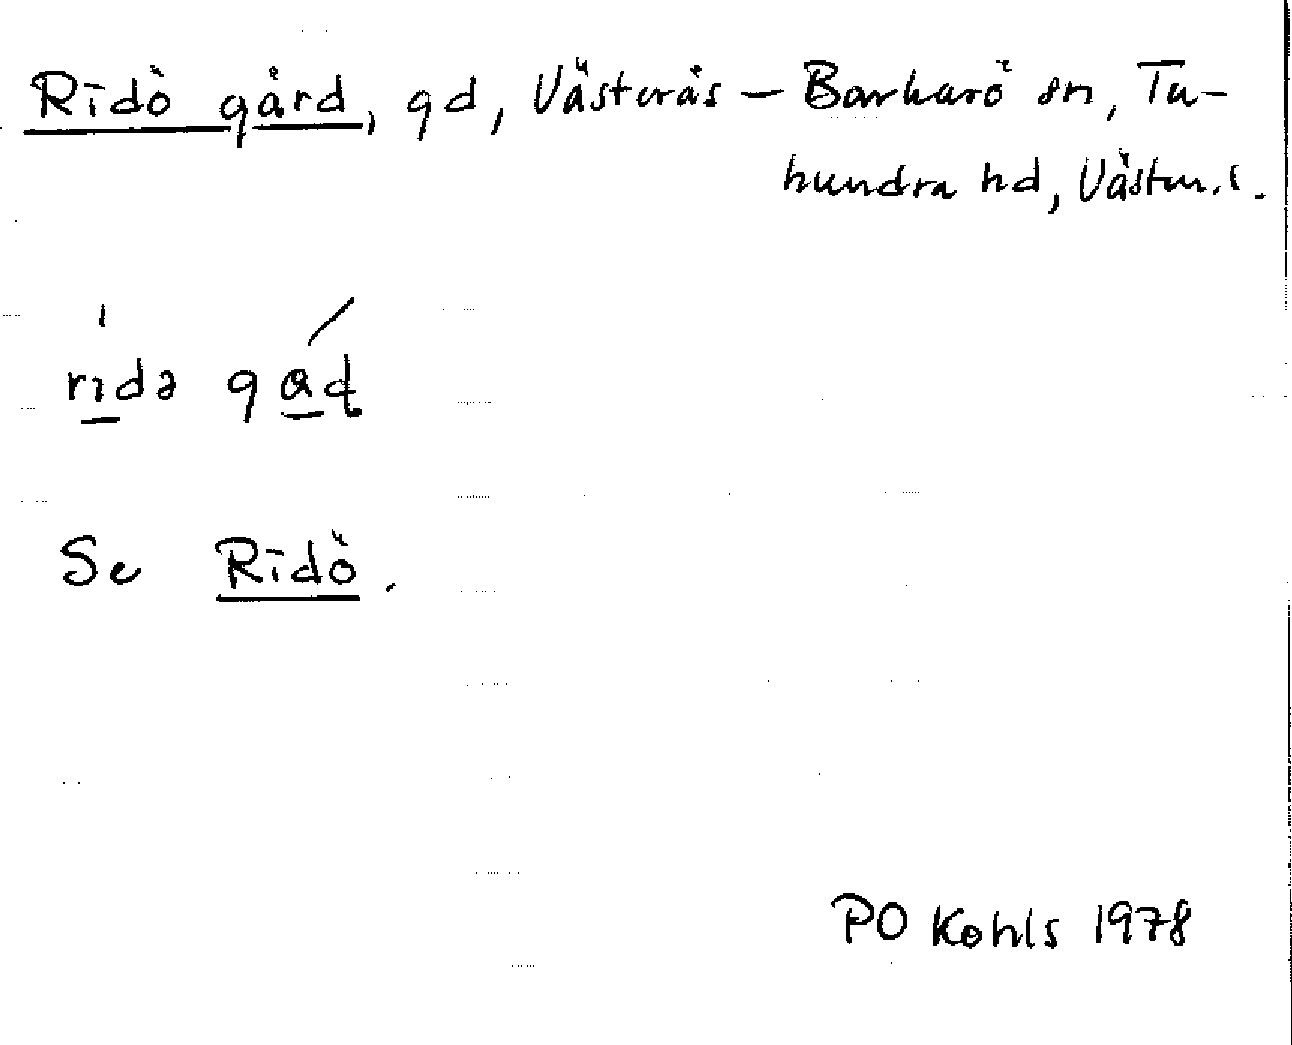 Ridö gård, gd, Västerås – Barkarö sn, Tu-
hundra hd, Västm. l.
ridə gɑḍ
Se Ridö.
PO Kohls 1978